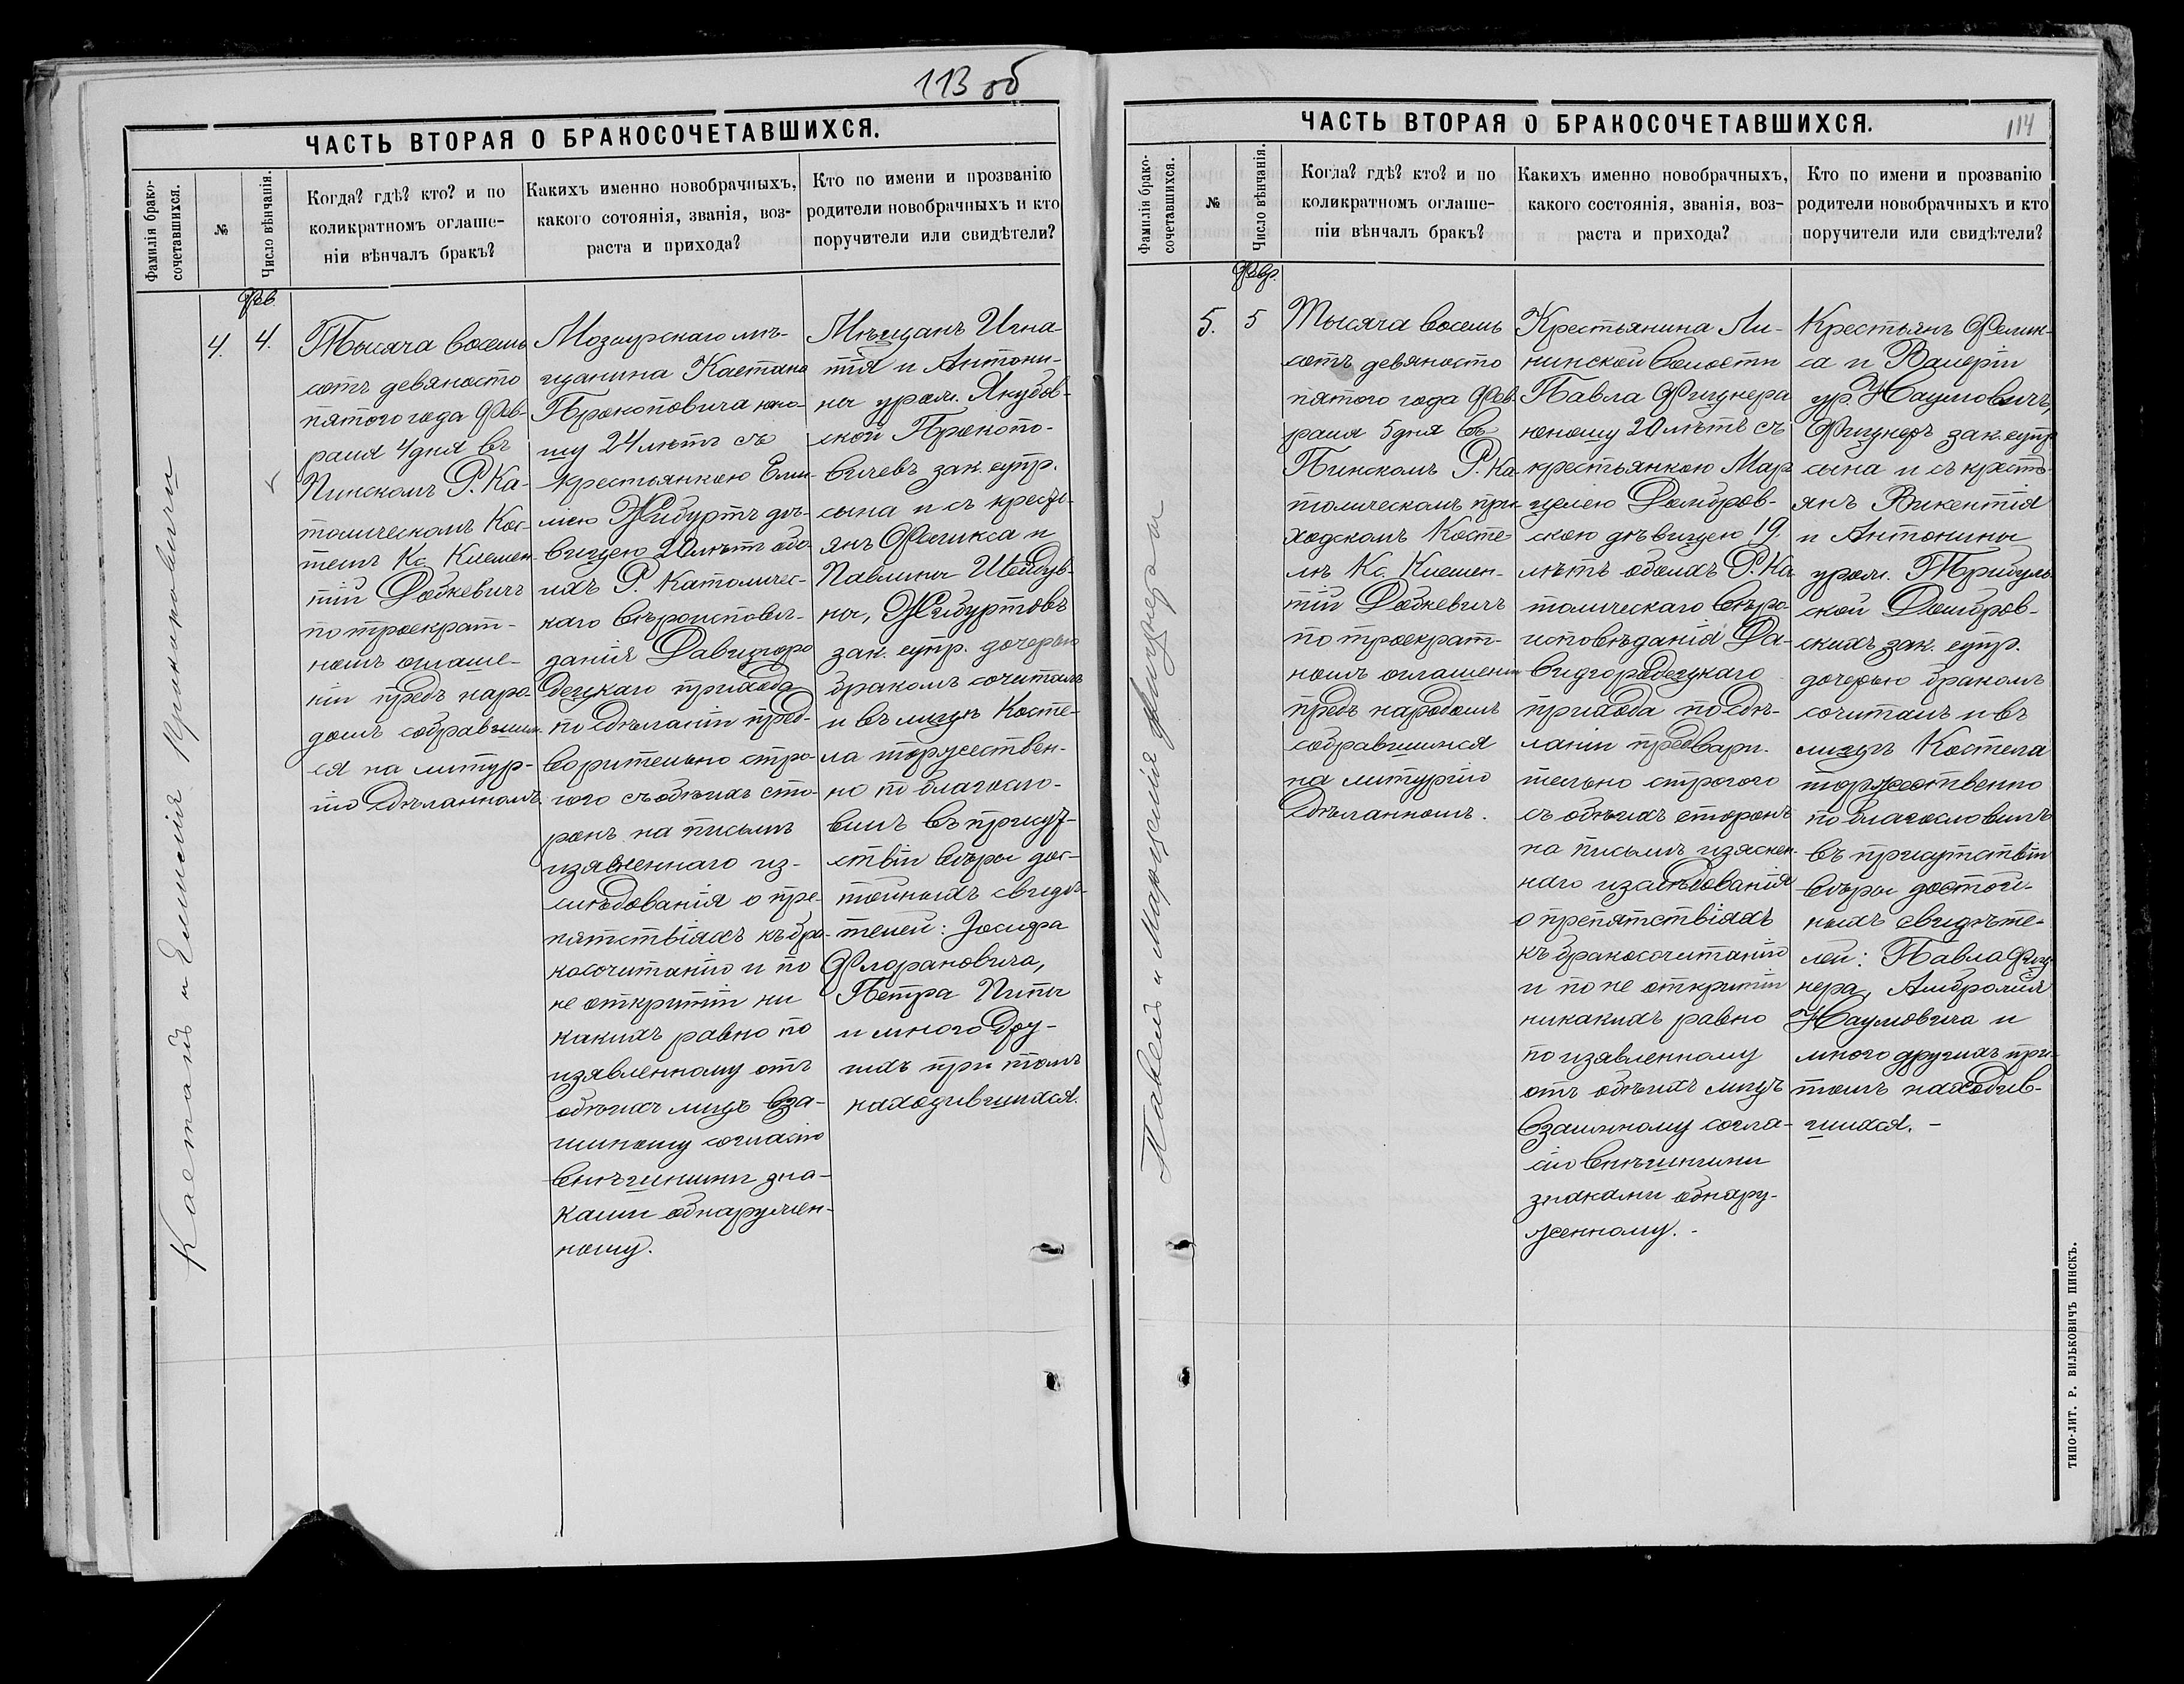 113 об
ЧАСТЬ ВТОРАЯ О БРАКОСОЧЕТАВШИХСЯ.
Фамилія брако-
сочетавшихся.
№
Число вѣнчанія.
Когда? гдѣ? кто? и по
коликратномъ оглаше-
ніи вѣнчалъ бракъ?
Какихъ именно новобрачныхъ,
какого сотоянія, званія, воз-
раста и прихода?
Кто по имени и прозванію
родители новобрачныхъ и кто
поручители или свидѣтели?
Каетанъ и Емилія
Фев.
4.
4.
Тысяча восемь
сотъ девяносто
пятого года Фев-
раля 4 дня въ
Пинскомъ Р. Ка-
толическомъ Кос-
телѣ Кс. Климен-
тій Добкевичъ
по троекрат-
номъ оглаше-
ніи предъ наро-
домъ собравшим-
ся на литур-
гію сдѣланномъ.
Мозырскаго мѣ-
щанина Каетана
Прокоповича юно-
шу 24 лѣтъ съ
крестьянкою Еми-
ліею Жибуртъ дѣ-
вицею 20 лѣтъ обо-
ихъ Р. Католичес-
каго вѣроисповѣ-
данія Давидгоро
децкаго прихода
по сдѣланіи пред-
ворительно стро-
гого съ обѣихъ сто-
ронъ на письмѣ
изясненнаго из-
слѣдованія о пре-
пятствіяхъ къ бра-
косочитанію и по
не открытіи ни
какихъ равно по
изявленному отъ
обѣихъ лицъ вза-
имному согласію
внѣшними зна-
ками обнаружен-
ному.
Мѣщанъ Игна-
тія и Антони-
ны урож. Якубов-
ской Прокопо-
вичевъ зак. супр.
сына и съ кресть-
янъ Феликса и
Павлины
Жибуртовъ
зак. супр. дочерью
бракомъ сочиталъ
и въ лицѣ Косте-
ла торжествен-
но по благосло-
вилъ въ присут-
ствіи вѣры дос-
тойныхъ свидѣ-
телей: Іосифа
Флорановича,
Петра Пипы
и много дру-
гихъ при томъ
находившихся.
114
ЧАСТЬ ВТОРАЯ О БРАКОСОЧЕТАВШИХСЯ.
Фамилія брако-
сочетавшихся.
№
Число вѣнчанія.
Когда? гдѣ? кто? и по
коликратномъ оглаше-
ніи вѣнчалъ бракъ?
Какихъ именно новобрачныхъ,
какого состоянія, званія, воз-
раста и прихода?
Кто по имени и прозванію
родители новобрачныхъ и кто
поручители или свидѣтели?
Павелъ и Марцелія Фицнера
Февр.
5.
5
Тысяча восемь
сотъ девяносто
пятого года Фев-
раля 5 дня въ
Пинскомъ Р. Ка-
толическомъ при-
ходскомъ Косте-
лѣ Кс. Климен-
тій Добкевичъ
по троекрат-
номъ оглашеніи
предъ народомъ
собравшимся
на литургію
сдѣланномъ.
Крестьянина Ли-
нинской волости
Павла Фицнера
юношу 20 лѣтъ съ
крестьянкою Мар-
целею Домбров-
скою дѣвицею 19
лѣтъ обоихъ Р. Ка
толическаго вѣро-
исповѣданія Да-
видгородецкаго
прихода по сдѣ-
ланіи предвари-
тельно строгого
съ обѣихъ сторонъ
на письмѣ изяснен-
наго изслѣдованія
о препятствіяхъ
къ бракосочитанію
и по не открытіи
никакихъ равно
по изявленному
отъ обѣихъ лицъ
взаимному согла-
сію внѣшними
знаками обнару-
женному. -
Крестьянъ Фелик-
са и Валеріи
ур. Наумовичъ,
Фицнеръ зак. супр
сына и съ кресть
янъ Викентія
и Антонины
урож. Трибуль-
ской Домбров-
скихъ зак. супр.
дочерью бракомъ
сочиталъ и въ
лицѣ Костела
торжественно
по благословилъ
въ присутствіи
вѣры достой-
ныхъ свидѣте-
лей: Павла Фиц-
нера, Амброзія
Наумовича и
много другихъ при
томъ находив-
шихся. -
ТИПО-ЛИТ. Р. ВИЛЬКОВИЧЪ ПИНСКЪ.